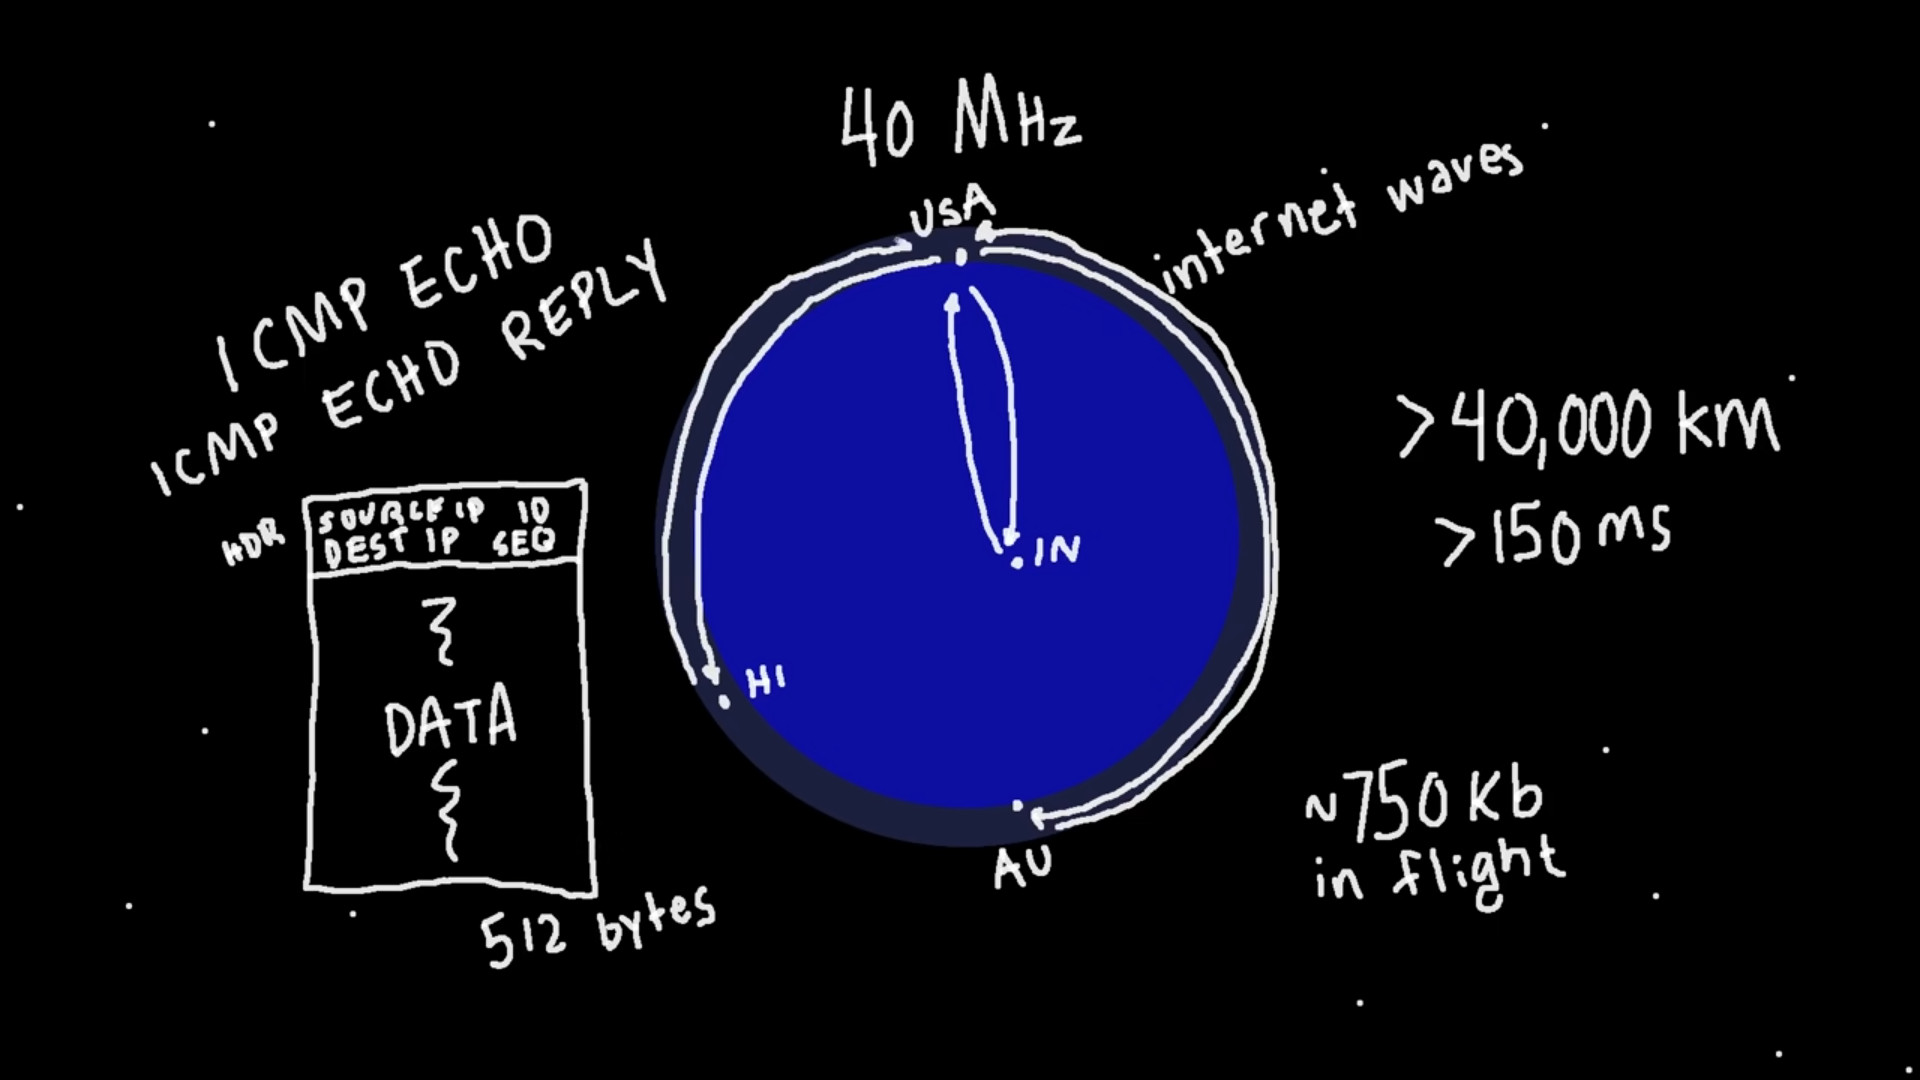 40 MHz
USA
internet waves
ICMP ECHO
ICMP ECHO REPLY
>40,000 km
>150 ms
HDR
SOURCE IP ID
DEST IP SEQ
IN
DATA
HI
~750 Kb
in flight
AU
512 bytes